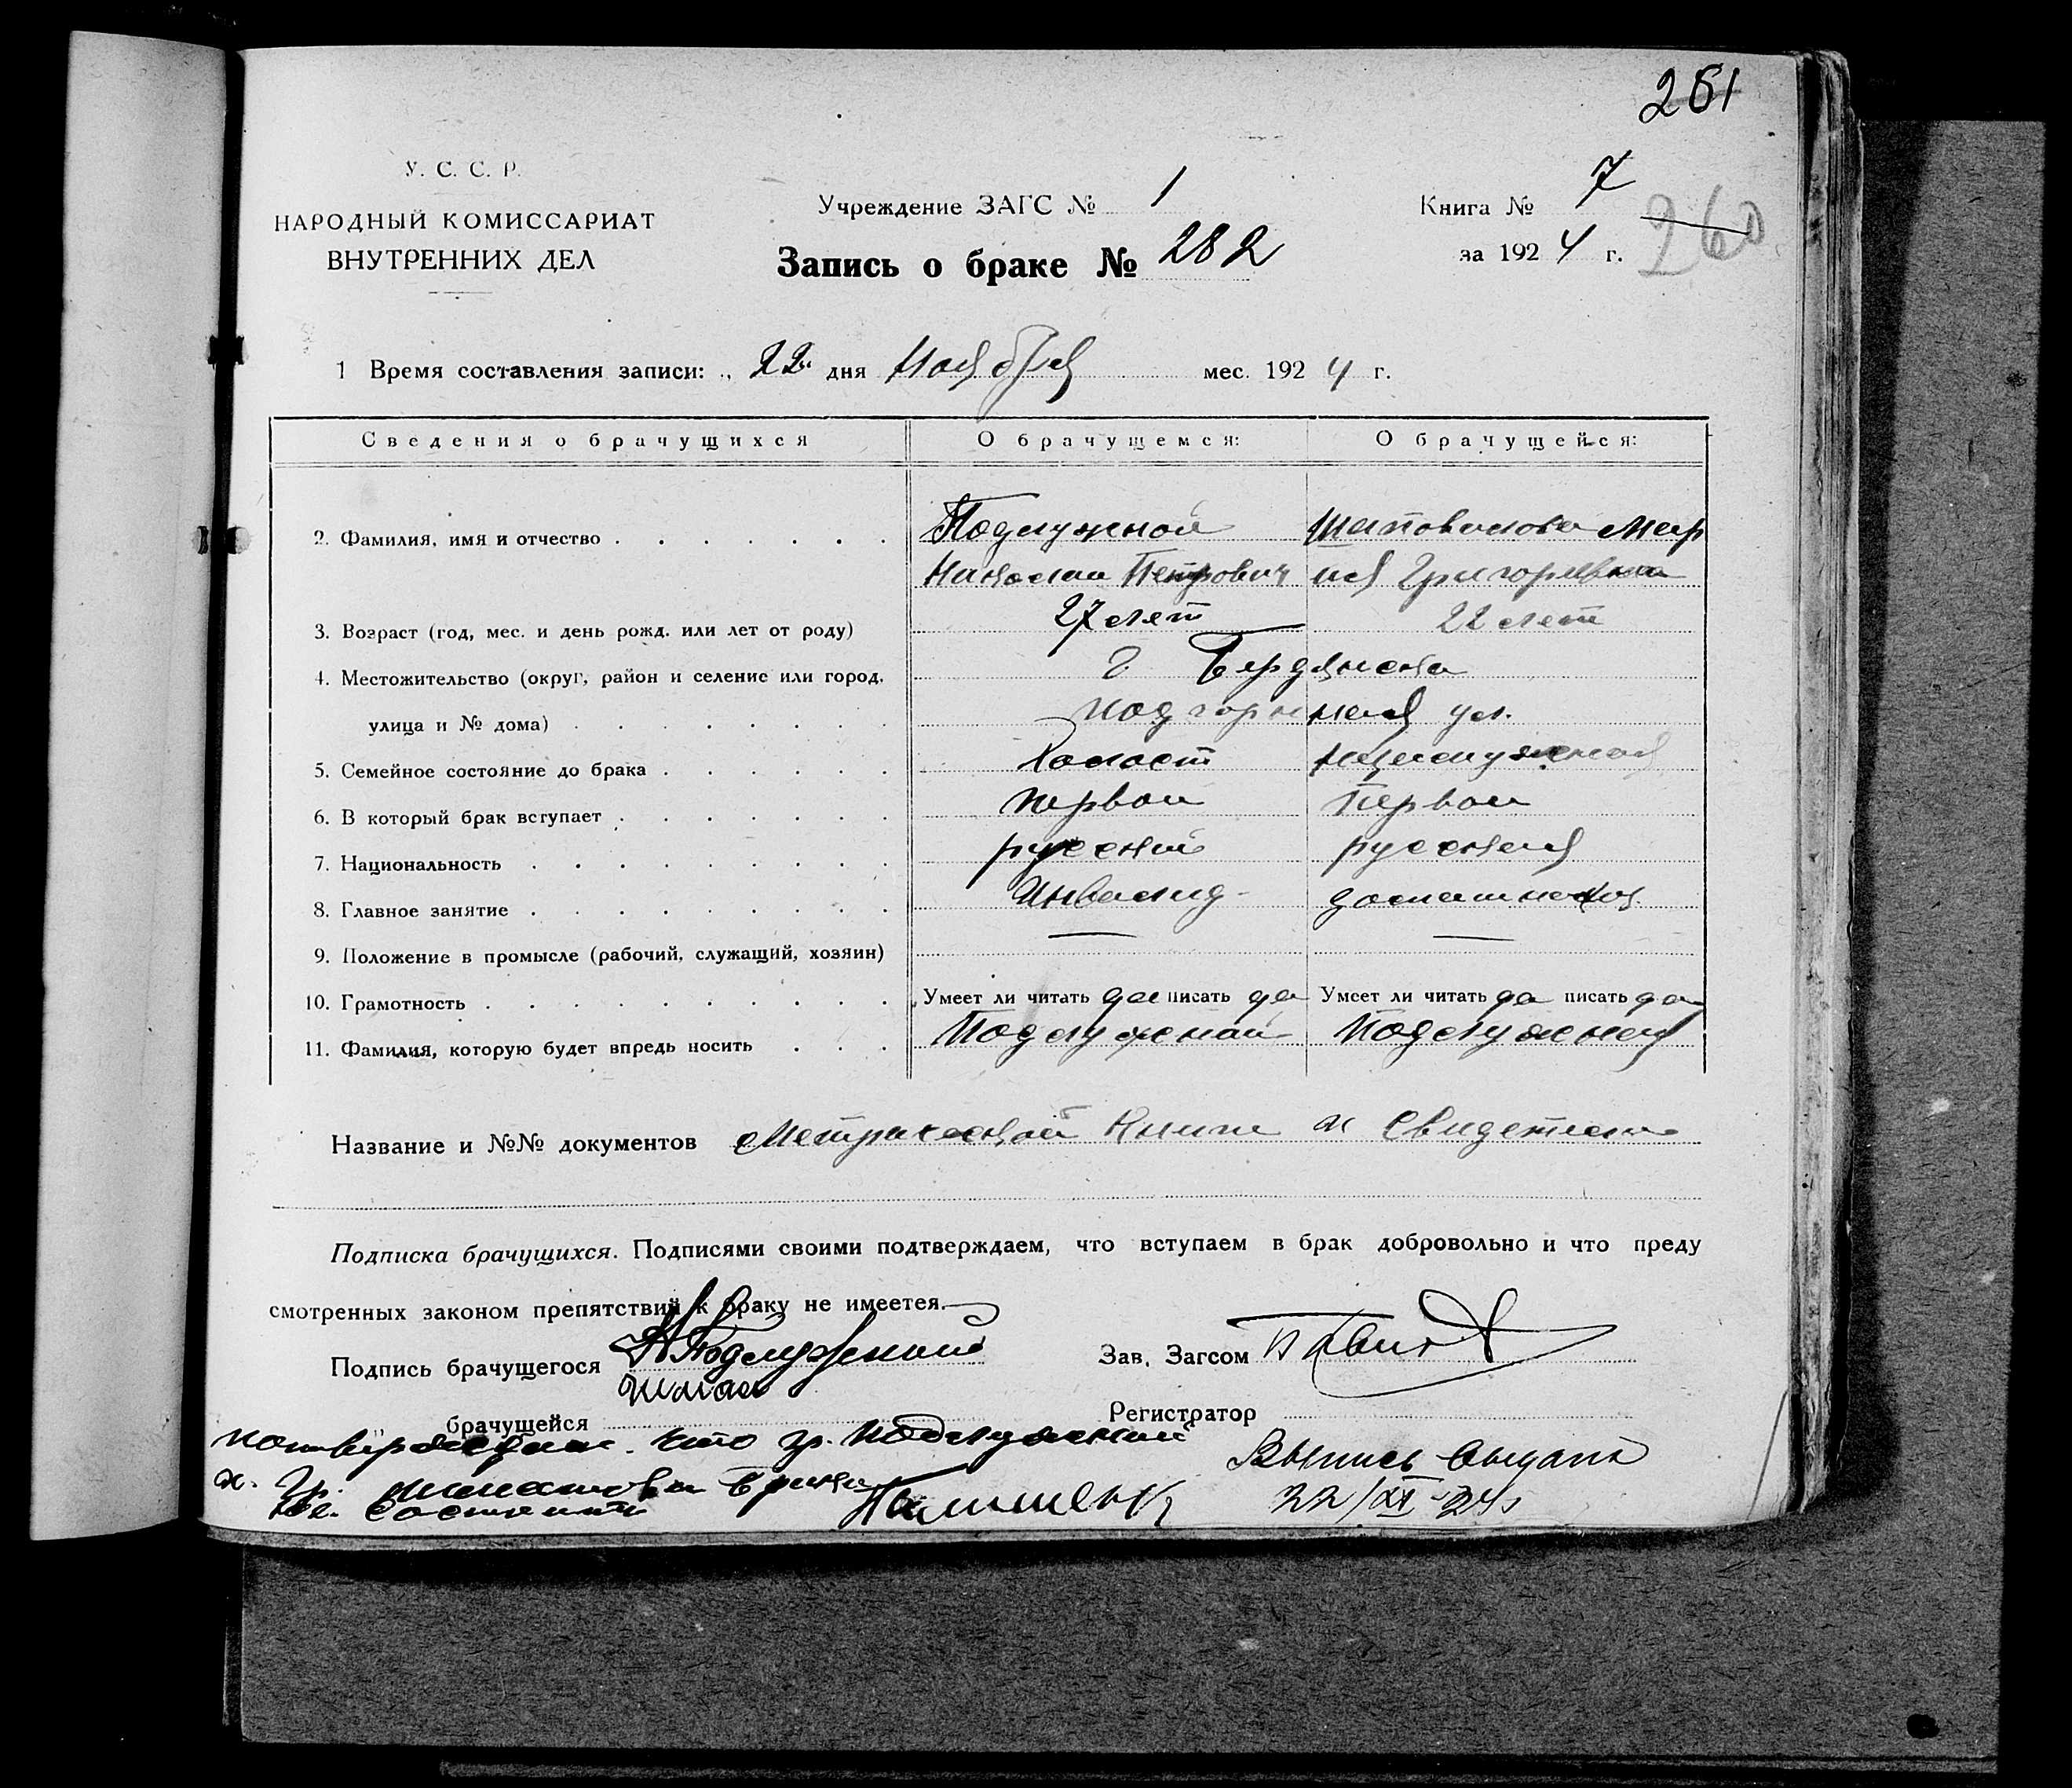 261
У. С. С. Р.
НАРОДНЫЙ КОМИССАРИАТ
ВНУТРЕННИХ ДЕЛ
Учреждение ЗАГС № 1
Запись о браке № 282
Книга № 7
за 1924 г.
260
1 Время составления записи: „ 22 " дня Ноября мес. 1924 г.
Сведения о брачущихся О брачущемся: О брачущейся:
2. Фамилия, имя и отчество Подлужной Шаповалова Мар
Николай Петрович ия Григорьевна
3. Возраст (год, мес. и день рожд. или лет от роду) 27 лет 22 лет
4. Местожительство (округ, район и селение или город, г Бердянска
улица и № дома) подгорняя ул.
5. Семейное состояние до брака Холост
6. В который брак вступает первой первой
7. Национальность русский русская
8. Главное занятие Инвалид
9. Положение в промысле (рабочий, служащий, хозяин) — —
10. Грамотность Умеет ли читать да писать да Умеет ли читать да писать да
11. Фамилия, которую будет впредь носить Подлужнай Подлужная
Название и №№ документов Метрической книги и свидетели
Подписка брачущихся. Подписями своими подтверждаем, что вступаем в брак добровольно и что преду
смотренных законом препятствий к браку не имеетея.
Подпись брачущегося Н Подлужный
Зав. Загсом
„ брачущейся
Регистратор
что гр. Подлужный
Выпись выдана
22/XI-24